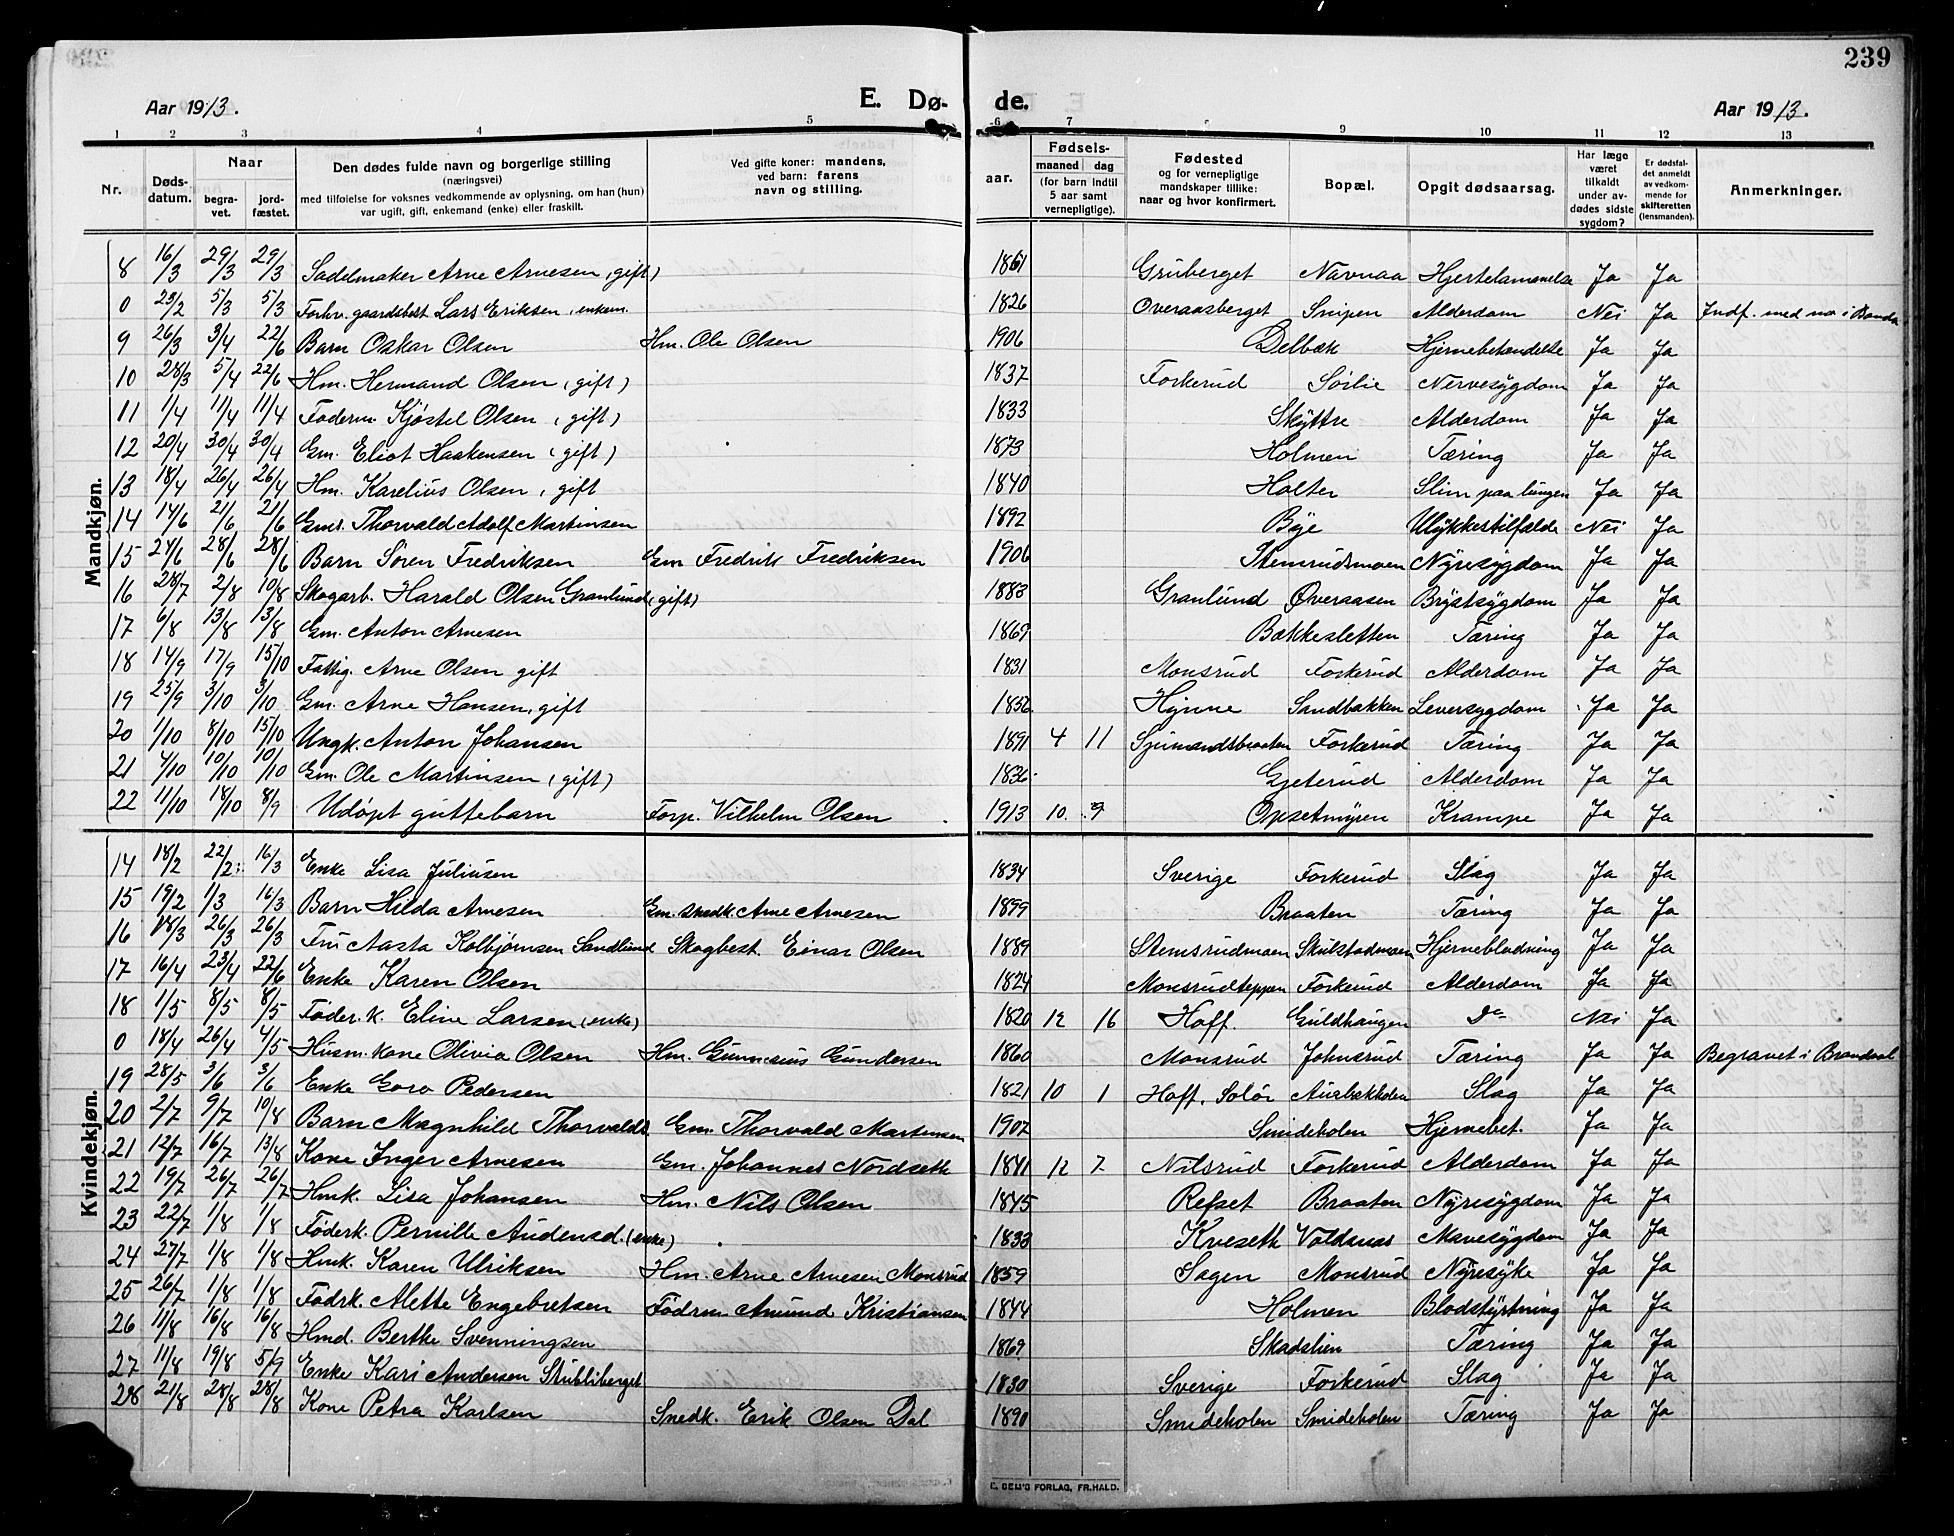 239
Aar 1913. E. Dø- de. Aar 1913.
1 2 3 4 5 6 7 8 9 10 11 12 13
Nr. Døds-datum. Naar begra-vet. jord-fæstet. Den dødes fulde navn og borgerlige stilling (næringsvei) med tilføielse for voksnes vedkommende av oplysning, om han (hun) var ugift, gift, enkemand (enke) eller fraskilt. Ved gifte koner: mandens, ved barn: farens navn og stilling. aar. Fødsels- maaned dag (for barn indtil 5 aar samt vernepligtige). Fødested og for vernepligtige mandskaper tillike: naar og hvor konfirmert. Bopæl. Opgit dødsaarsag. Har læge været tilkaldt under av-dødes sidste sygdom? Er dødsfal-det anmeldt av vedkom-mende for skifteretten (lensmanden). Anmerkninger.
Mandkjøn.
8 16/3 29/3 29/3 Sadelmaker Arne Arnesen (gift) 1861 Gruberget Navnaa Hjertelammelse Ja Ja
0 23/2 5/3 5/3 Forhv. gaardsbest Lars Eriksen, enkem. 1826 Overaasberget Snipen Alderdom Nei Ja Indf. med no i
9 26/3 3/4 22/6 Barn Oskar Olsen Hm. Ole Olsen 1906 Delbæk Hjernebetændelse Ja Ja
10 28/3 5/4 22/6 Hm. Hermand Olsen (gift) 1837 Forkerud Sørlie Nervesygdom Ja Ja
11 1/4 11/4 11/4 Føderm. Kjøstel Olsen (gift) 1833 Skyttre Alderdom Ja Ja
12 20/4 30/4 30/4 Gm. Eliot Haakensen (gift) 1873 Holmen Tæring Ja Ja
13 18/4 26/4 26/4 Hm. Karelius Olsen, gift 1840 Holter Slim paa lungen Ja Ja
14 14/6 21/6 21/6 Gms. Thorvald Adolf Martinsen 1892 Bye Ulykkestilfælde Nei Ja
15 24/6 28/6 28/6 Barn Søren Fredriksen Gm Fredrik Fredriksen 1906 Stemsrudsmoen Nyresygdom Ja Ja
16 28/7 2/8 10/8 Skogarb. Harald Olsen Granlund (gift) 1883 Granlund Øveraasen Brystsygdom Ja Ja
17 6/8 13/8 13/8 Gm. Anton Arnesen 1869 Bækkesletten Tæring Ja Ja
18 14/9 17/9 15/10 Fattig. Arne Olsen gift 1831 Monsrud Forkerud Alderdom Ja Ja
19 25/9 3/10 3/10 Gm. Arne Hansen, gift 1832 Hynne Sandbakken Leversygdom Ja Ja
20 1/10 8/10 15/10 Ungk. Anton Johansen 1891 4 11 Sjumandsbraaten Forkerud Tæring Ja Ja
21 4/10 10/10 10/10 Gm. Ole Martinsen (gift) 1836 Gjeterud Alderdom Ja Ja
22 11/10 18/10 8/9 Udøpt guttebarn Forp. Vilhelm Olsen 1913 10. 9 Opsetmyren Krampe Ja Ja
Kvindekjøn.
14 18/2 22/2 16/3 Enke Lisa Juliusen 1834 Sverige Forkerud Slag Ja Ja
15 19/2 1/3 16/3 Barn Hilda Arnesen Gm. snedk. Arne Arnesen 1899 Braaten Tæring Ja Ja
16 18/3 26/3 26/3 Fru Aasta Kolbjørnsen Sandlund Skogbest. Einar Olsen 1889 Stemsrudmoen Skulstadmoen Hjerneblødning Ja Ja
17 16/4 23/4 22/6 Enke Karen Olsen 1824 Monsrudteppen Forkerud Alderdom Ja Ja
18 1/5 8/5 8/5 Føder.k. Eline Larsen (enke) 1820 12 16 Hoff. Guldhaugen Do Nei Ja
0 18/4 26/4 4/5 Husm. kone Olivia Olsen Hm. Gunnerius Gundersen 1860 Monsrud Johnsrud Tæring Ja Ja Begravet i Brandval
19 28/5 3/6 3/6 Enke Goro Pedersen 1821 10 1 Hoff. Solør Aurbakholen Slag Ja Ja
20 2/7 9/7 10/8 Barn Magnhild Thorvalds Gm. Thorvald Martinsen 1907 Smideholen Hjernebet. Ja Ja
21 12/7 16/7 13/8 Kone Inger Arnesen Gm. Johannes Nordseth 1841 12 7 Nilsrud Forkerud Alderdom Ja Ja
22 19/7 26/7 26/7 Hmk. Lisa Johansen Hm. Nils Olsen 1845 Refset Braaten Nyresygdom Ja Ja
23 22/7 1/8 1/8 Føderk. Pernille Audensd. (enke) 1833 Kveseth Voldsnes Mavesygdom Ja Ja
24 27/7 1/8 1/8 Hmk. Karen Ulriksen Hm. Arne Arnesen Monsrud 1859 Sagen Monsrud Nyresyke Ja Ja
25 26/7 1/8 1/8 Fødrk. Alette Engebretsen Fødrm. Amund Kristiansen 1844 Holmen Blodstyrtning Ja Ja
26 11/8 16/8 16/8 Hmd. Berthe Svenningsen 1869 Skadslien Tæring Ja Ja
27 11/8 19/8 5/9 Enke Kari Andersen Stubliberget 1830 Sverige Forkerud Slag Ja Ja
28 21/8 28/8 28/8 Kone Petra Karlsen Snedk. Erik Olsen Dal 1890 Smideholen Smideholen Tæring Ja Ja
FORLAG, FR.HALD.